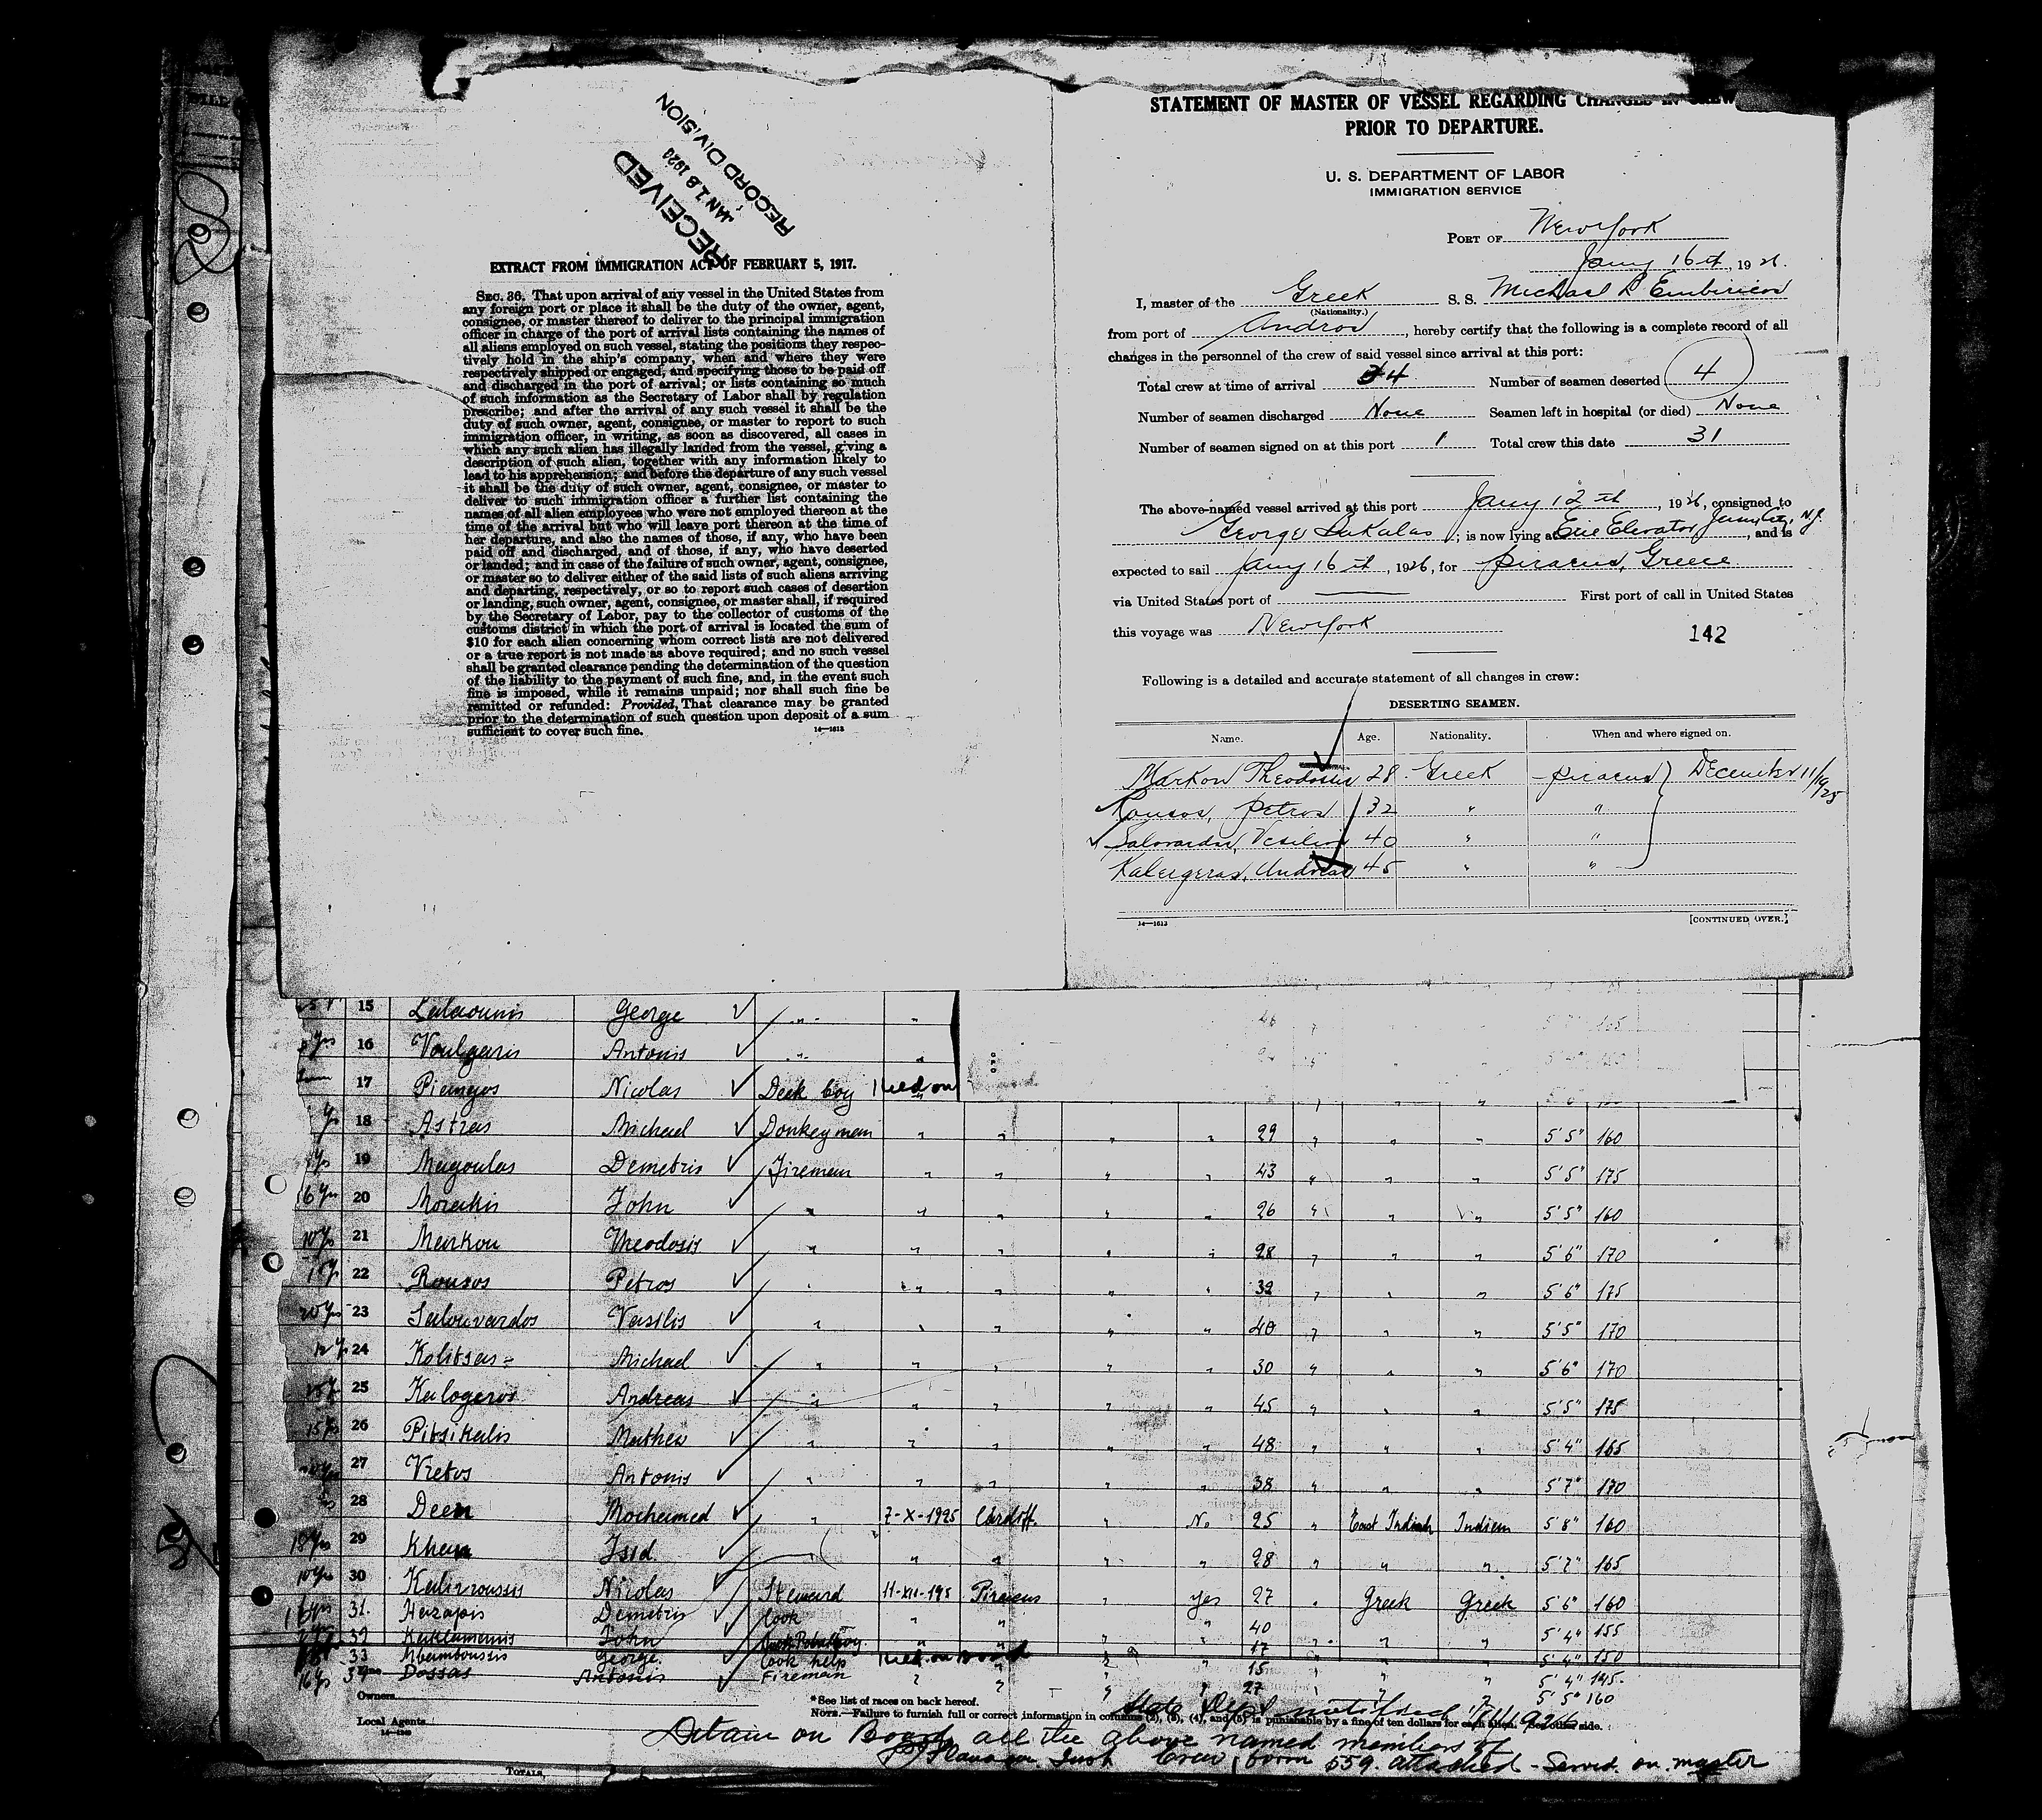 RECEIVED
JAN 18 1926
RECORD DIVISION
EXTRACT FROM IMMIGRATION ACT OF FEBRUARY 5, 1917.
SEC. 36. That upon arrival of any vessel in the United States from
any foreign port or place it shall be the duty of the owner, agent,
consignee, or master thereof to deliver to the principal immigration
officer in charge of the port of arrival lists containing the names of
all aliens employed on such vessel, stating the positions they respec-
tively hold in the ship's company, when and where they were
respectively shipped or engaged, and specifying those to be paid off
and discharged in the port of arrival; or lists containing so much
of such information as the Secretary of Labor shall by regulation
prescribe; and after the arrival of any such vessel it shall be the
duty of such owner, agent, consignee, or master to report to such
immigration officer, in writing, as soon as discovered, all cases in
which any such alien has illegally landed from the vessel, giving a
description of such alien, together with any information likely to
lead to his apprehension; and before the departure of any such vessel
it shall be the duty of such owner, agent, consignee, or master to
deliver to such immigration officer a further list containing the
names of all alien employees who were not employed thereon at the
time of the arrival but who will leave port thereon at the time of
her departure, and also the names of those, if any, who have been
paid off and discharged, and of those, if any, who have deserted
or landed; and in case of the failure of such owner, agent, consignee,
or master so to deliver either of the said lists of such aliens arriving
and departing, respectively, or so to report such cases of desertion
or landing, such owner, agent, consignee, or master shall, if required
by the Secretary of Labor, pay to the collector of customs of the
customs district in which the port of arrival is located the sum of
$10 for each alien concerning whom correct lists are not delivered
or a true report is not made as above required; and no such vessel
shall be granted clearance pending the determination of the question
of the liability to the payment of such fine, and, in the event such
fine is imposed, while it remains unpaid; nor shall such fine be
remitted or refunded: Provided, That clearance may be granted
prior to the determination of such question upon deposit of a sum
sufficient to cover such fine.
14—1613
STATEMENT OF MASTER OF VESSEL REGARDING CHANGES IN CREW
PRIOR TO DEPARTURE.
U. S. DEPARTMENT OF LABOR
IMMIGRATION SERVICE
PORT OF New York
Jany 16th, 1926.
I, master of the Greek S. S. Michael L Embiricos
(Nationality.)
from port of Andros, hereby certify that the following is a complete record of all
changes in the personnel of the crew of said vessel since arrival at this port:
Total crew at time of arrival 34 Number of seamen deserted 4
Number of seamen discharged None Seamen left in hospital (or died) None
Number of seamen signed on at this port 1 Total crew this date 31
The above-named vessel arrived at this port Jany 12th, 1926, consigned to
George; is now lying at Erie Elevator Jersey City, N.J., and is
expected to sail Jany 16th, 1926, for Piraeus, Greece
via United States port of First port of call in United States
this voyage was New York
142
Following is a detailed and accurate statement of all changes in crew:
DESERTING SEAMEN.
Name. Age. Nationality. When and where signed on.
Markou Theodosis 28 Greek Piraeus December 11/1925
Rousos, Petros 32 " "
Salovardos, Vasilios 40 " "
Kalergeras, Andreas 45 " "
14—1613 [CONTINUED OVER.]
15 Lalaounis George " "
16 Voulgaris Antonis " "
17 Piangos Nicolas Deck boy
18 Astras Michael Donkeyman " " " " 29 " " " 5'5" 160
19 Magoulas Demetris Fireman " " " " 43 " " " 5'5" 175
20 Morakis John " " " " " 26 " " " 5'5" 160
21 Markou Theodosis " " " " " 28 " " " 5'6" 170
22 Rousos Petros " " " " " 32 " " " 5'6" 175
23 Salouvardos Vasilis " " " " " 40 " " " 5'5" 170
24 Kolitsas Michael " " " " " 30 " " " 5'6" 170
25 Kalogeros Andreas " " " " " 45 " " " 5'5" 175
26 Pitsikalis Mathew " " " " " 48 " " " 5'4" 165
27 Vretos Antonis " " " " " 38 " " " 5'7" 170
28 Deen Mochamed " 7-X-1925 Cardiff " No 25 " East Indian Indian 5'8" 160
29 Khan Isid " " " " 28 " " " 5'7" 165
30 Kalizoussis Nicolas Steward 11-XII-195 Piraeus " Yes 27 " Greek Greek 5'6" 160
31. Hazapis Demetris Cook " " " 40 " " 5'4" 155
32 Kaklamanis John " " " " 17 " " " 5'4" 150
33 Mbamboussis George Cook help " " 15 " " 5'4" 145
34 Dossas Antonis Fireman " " " " 27 " " " 5'5" 160
Owners
Local Agents
*See list of races on back hereof.
NOTE.—Failure to furnish full or correct information in columns (2), (3), (4), and (5) is punishable by a fine of ten dollars for each alien. See other side.
Detain on Board all the above named members of
Crew, form 559. attached - Served on master
TOTALS